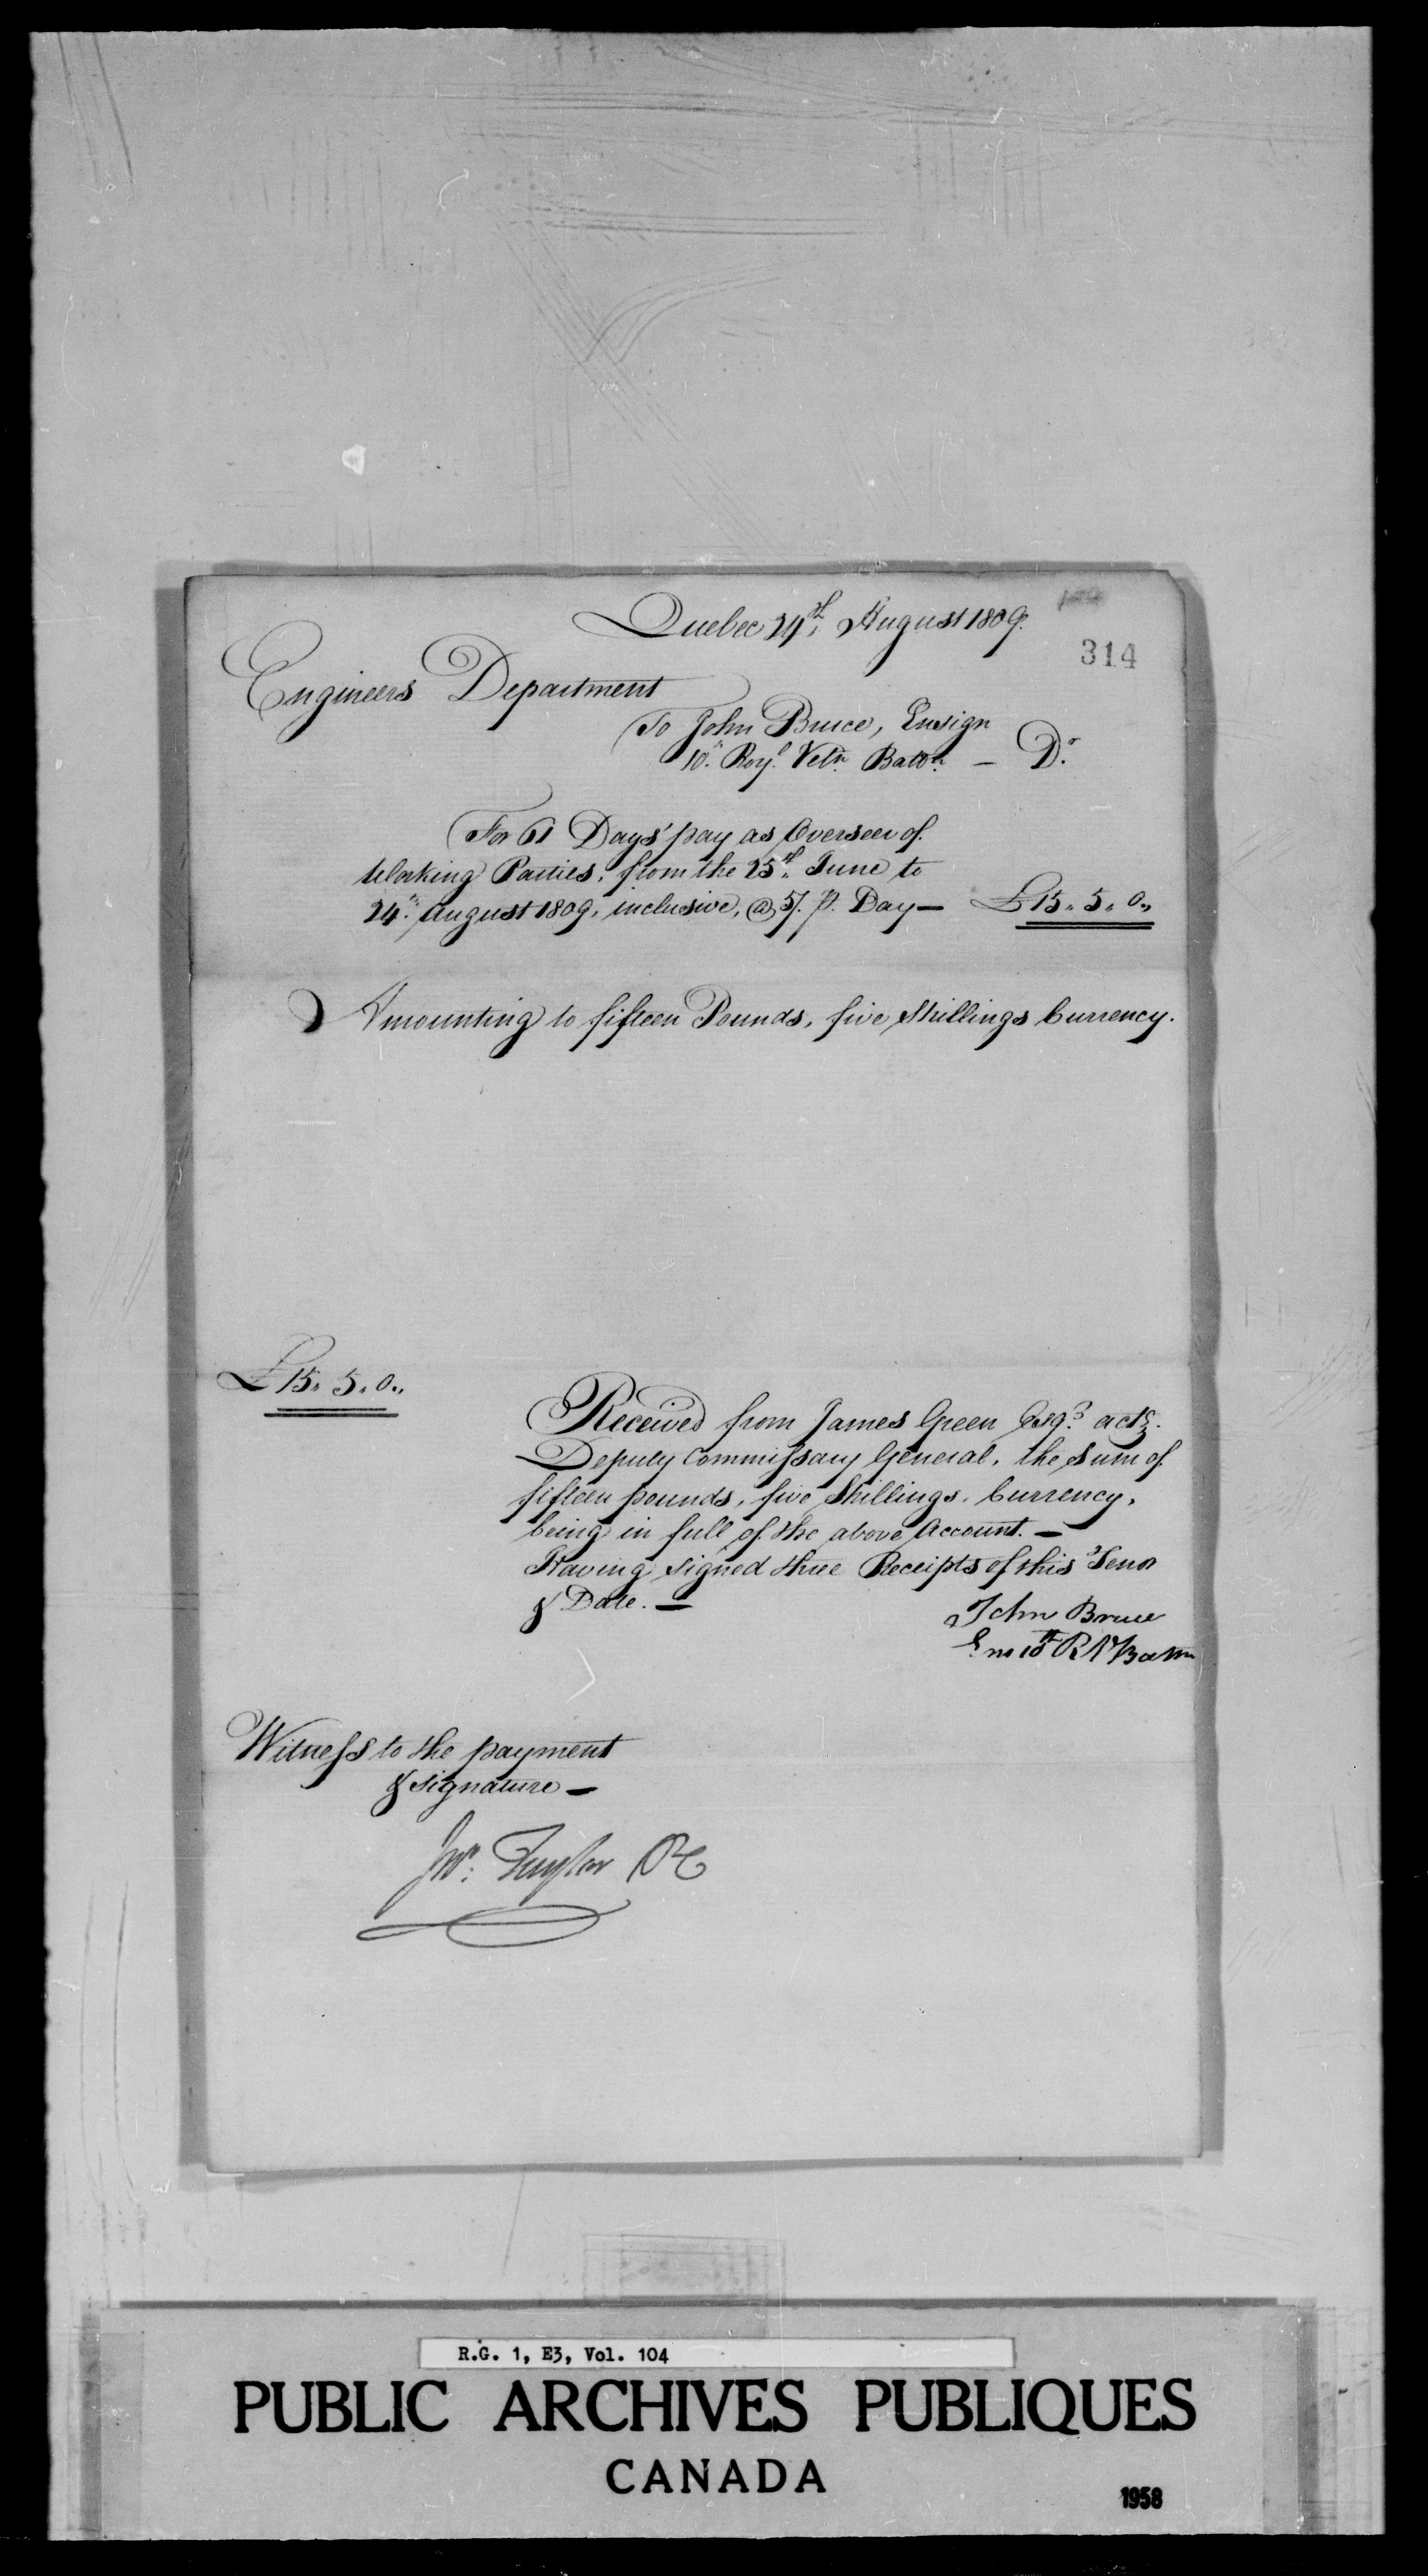 Quebec 24th, August 1809.
314
Engineers Department
To John Bruce, Ensign
10th Royl. Vetn. Baton. — Dr.
For 61 Days' pay as Overseer of
Working Parties, from the 25th, June to
24th, August 1809, inclusive, @ 5/. p. Day — £15.. 5.. 0..
Amounting to fifteen Pounds, five Shillings Currency.
£15.. 5.. 0..
Received from James Green Esqr. actg.
Deputy Commissary General, the Sum of
fifteen pounds, five Shillings, Currency,
being in full of the above Account. —
Having signed three Receipts of this Tenor
& Date. —
John Bruce
Ens 10th R V Batn
Witness to the payment
& signature —
Jno. Taylor
R.G. 1, E3, Vol. 104
PUBLIC ARCHIVES PUBLIQUES
CANADA
1958